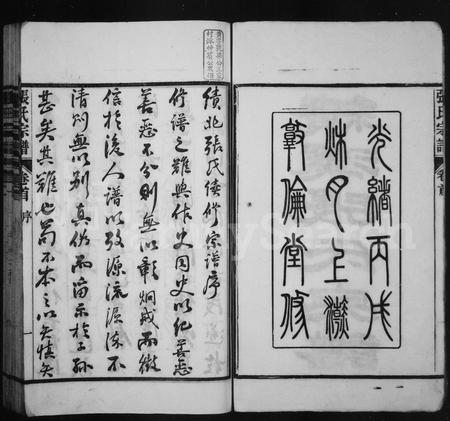 張氏宗譜
卷首
光緒丙戌
秌月上澣
敦倫堂修
續北張氏續修宗譜序
修譜之難與作史同史以紀善惡
善惡不分則無以彰炯戒而徵
信於後人譜以考源流源流不
清則無以別真偽而啇示於子孫
甚矣其難也苟不本之以矢慎矢
張氏宗譜
卷首
序
一
MyHeritage